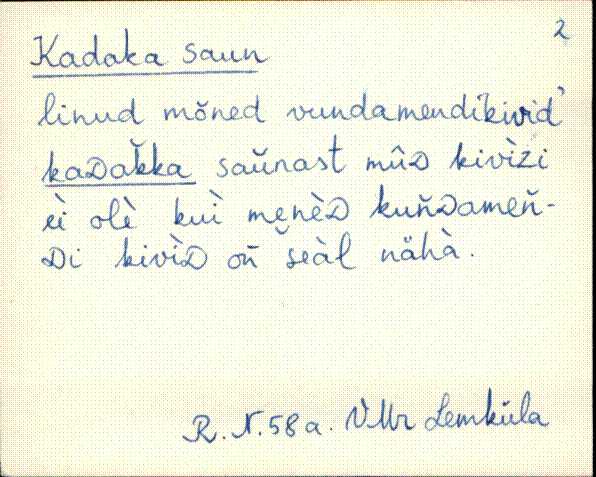 2
Kadaka saun
linud mõned vundamendikivid'
kaᴅak̆ka saŭnast mûᴅ kivìzi
èi olè kuì menèᴅ kuňᴅameň-
ᴅi kivìᴅ oň seàl nähà.
R. N. 58 a. VMr Lemküla